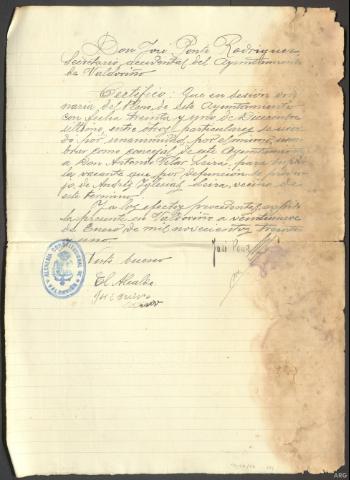 Don José Ponte Rodriguez
Secretario accidental del Ayuntamiento
de Valdoviño
Certifico: Que en sesión ordi
naria del Pleno de este Ayuntamiento
con fecha treinta y uno de Diciembre
último, entre otros particulares se acor
dó por unanimidad, nom
brar como concejal de este Ayuntamiento
a Don Antonio Vilar Leira, para
la vacante que por defunción
jo de Andrés Iglesias Leira, vecino de
este término.
Y a los efectos procedentes, expido
la presente en Valdoviño a veintinueve
de Enero de mil novecientos treinta
y uno.
José Ponte
Visto bueno
El Alcalde
ALCALDIA CONSTITUCIONAL DE
VALDOVIÑO
ARG